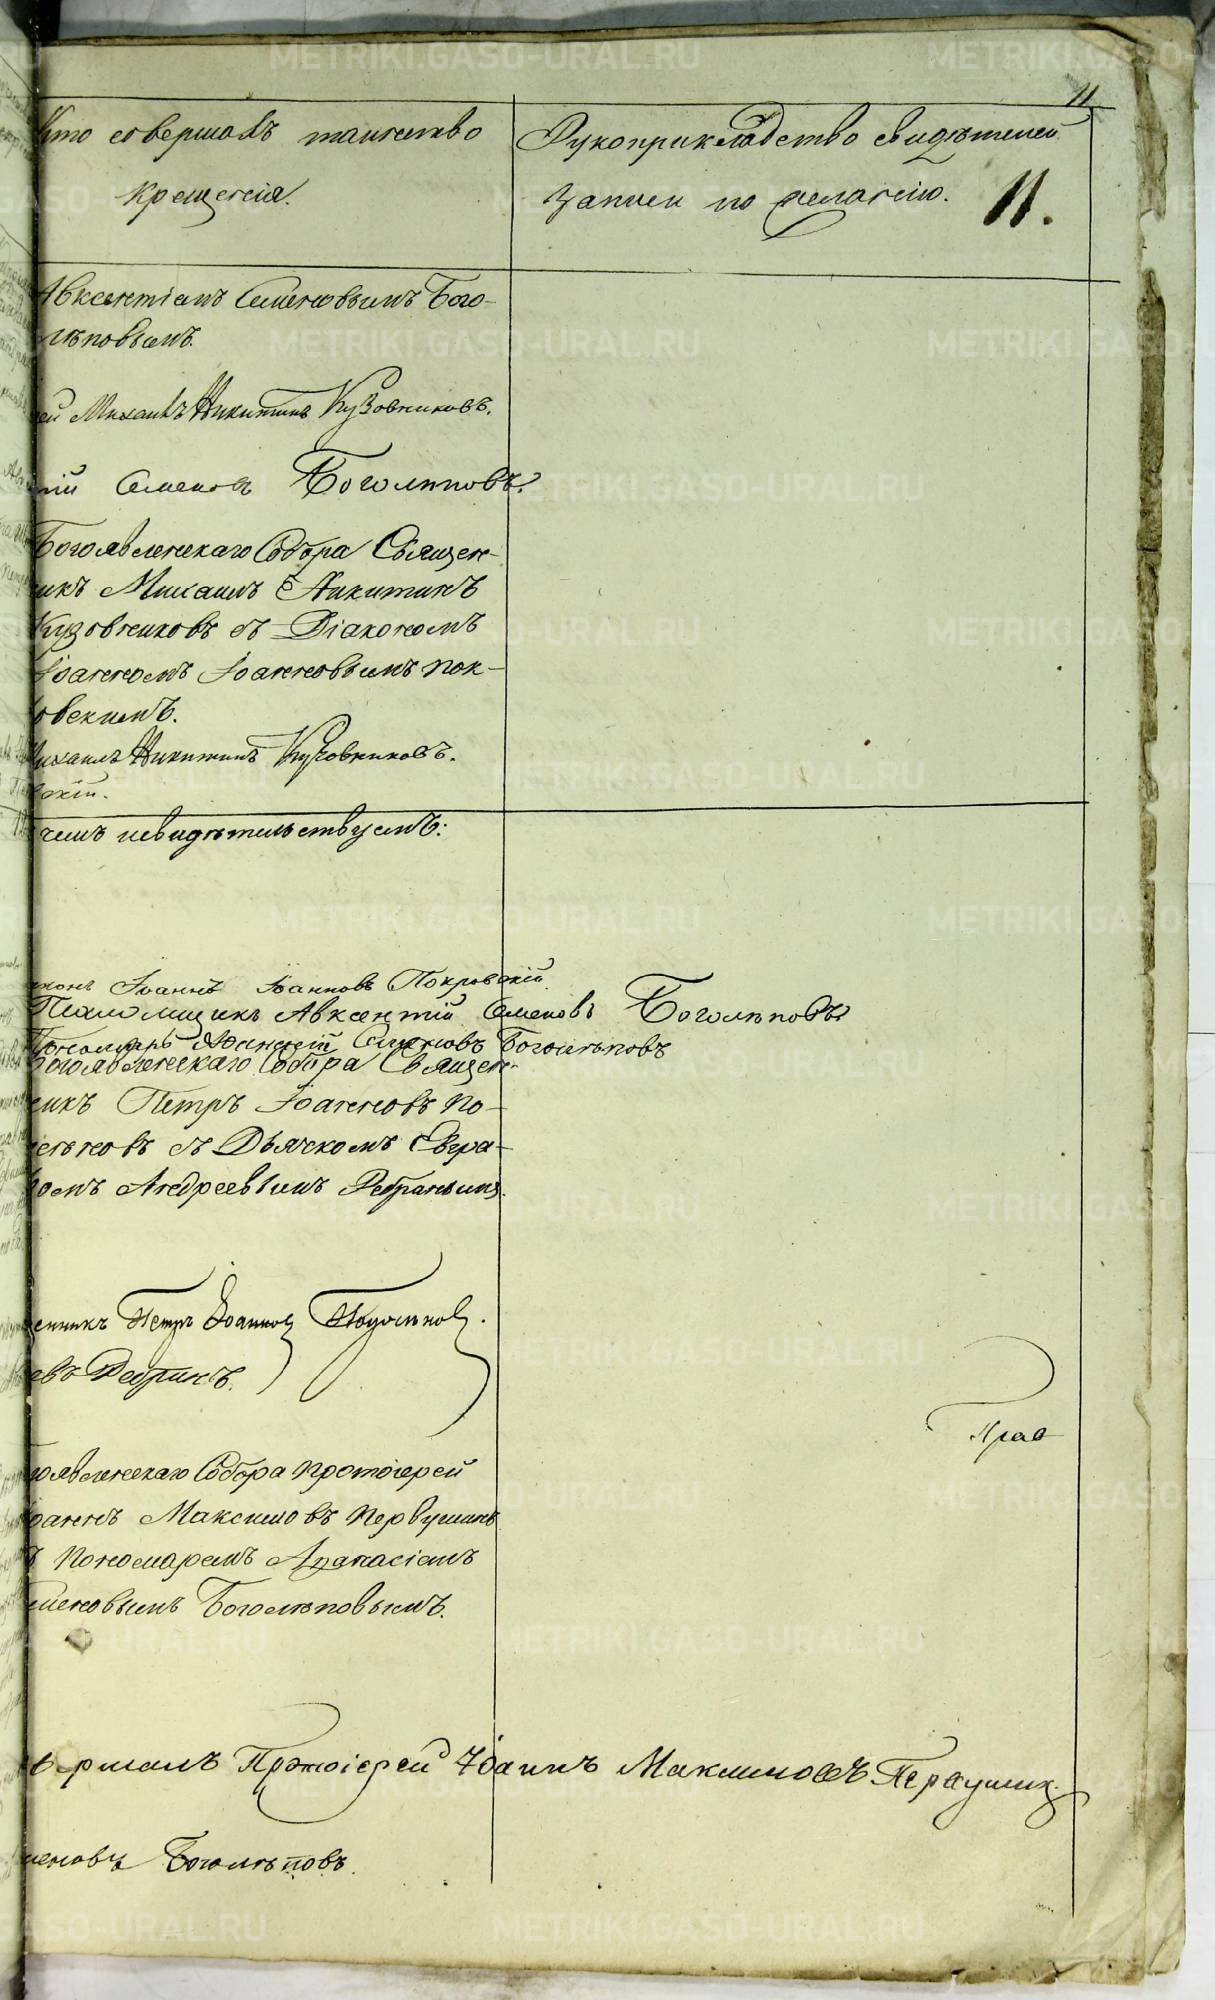 11
Кто совершалъ таинство
крещенія.
Рукоприкладство свидѣтелей
записи по желанію.
11.
Авксентіемъ Семеновымъ Бого-
лѣповымъ.
ей Михаилъ Никитинъ Кузовниковъ.
тій Семеновъ Боголѣповъ.
Богоявленскаго Собора Священ-
никъ Михаилъ Никитинъ
Кузовниковъ съ Діакономъ
Іоанномъ Іоанновымъ Пок-
ровскимъ.
Михаилъ Никитинъ Кузовниковъ.
вскій.
чемъ и свидѣтельствуемъ:
конъ Іоаннъ Іоанновъ Покровскій.
Псаломщикъ Авксентій Семеновъ Боголѣповъ
Пономарь Семеновъ Боголѣповъ
Богоявленскаго Собора Священ-
никъ Петръ Іоанновъ По-
съ Дьячкомъ Евгра-
фомъ Андреевымъ
енникъ Петръ Іоанновъ
евъ
Богоявленскаго Собора Протоіерей
Іоаннъ Максимовъ Первушинъ
съ Пономаремъ Афанасіемъ
Семеновымъ Боголѣповымъ.
Прав
ершалъ Протоіерей Іоаннъ Максимовъ Первушинъ.
меновъ Боголѣповъ.
METRIKI.GASO-URAL.RU